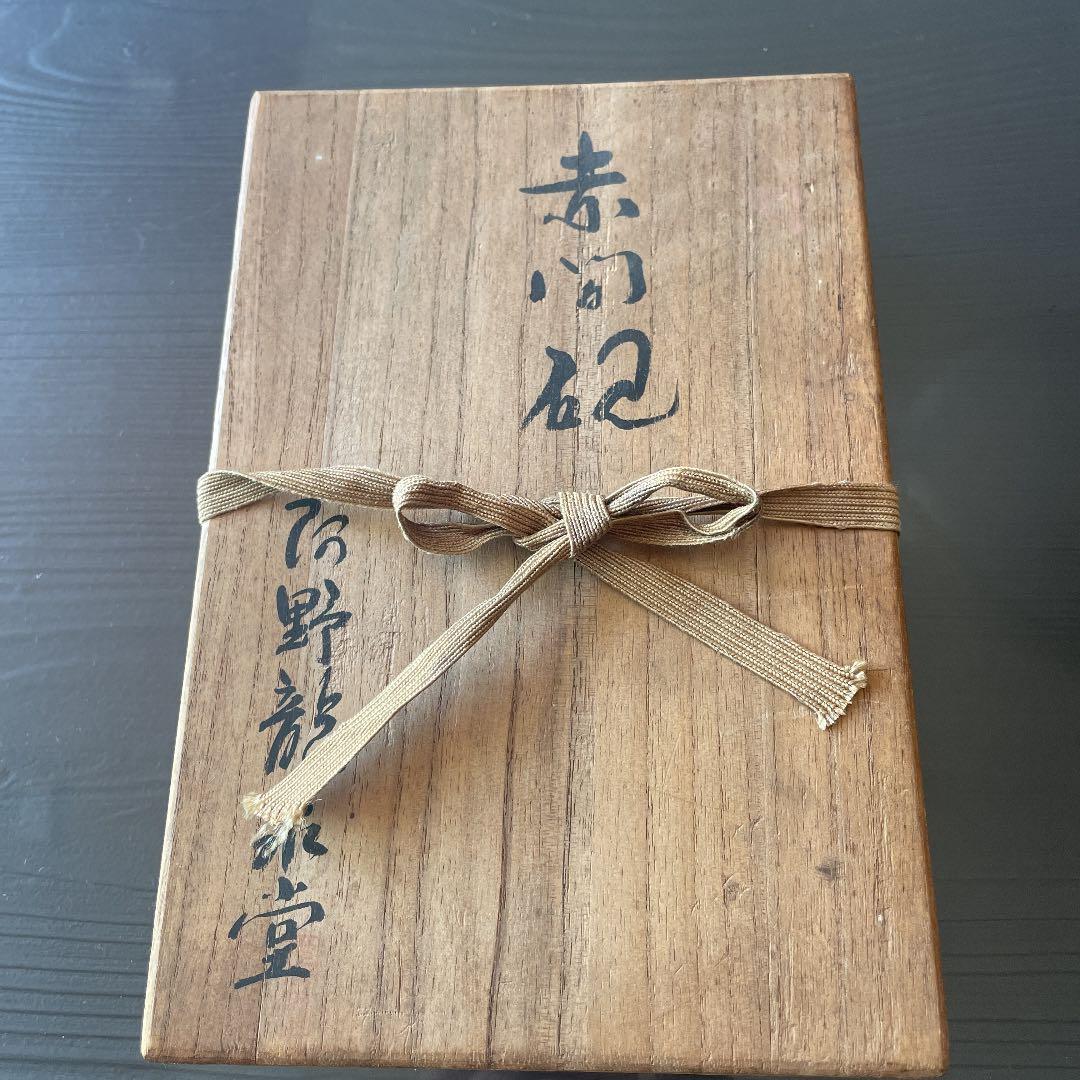 赤間硯
阿野龍泉堂